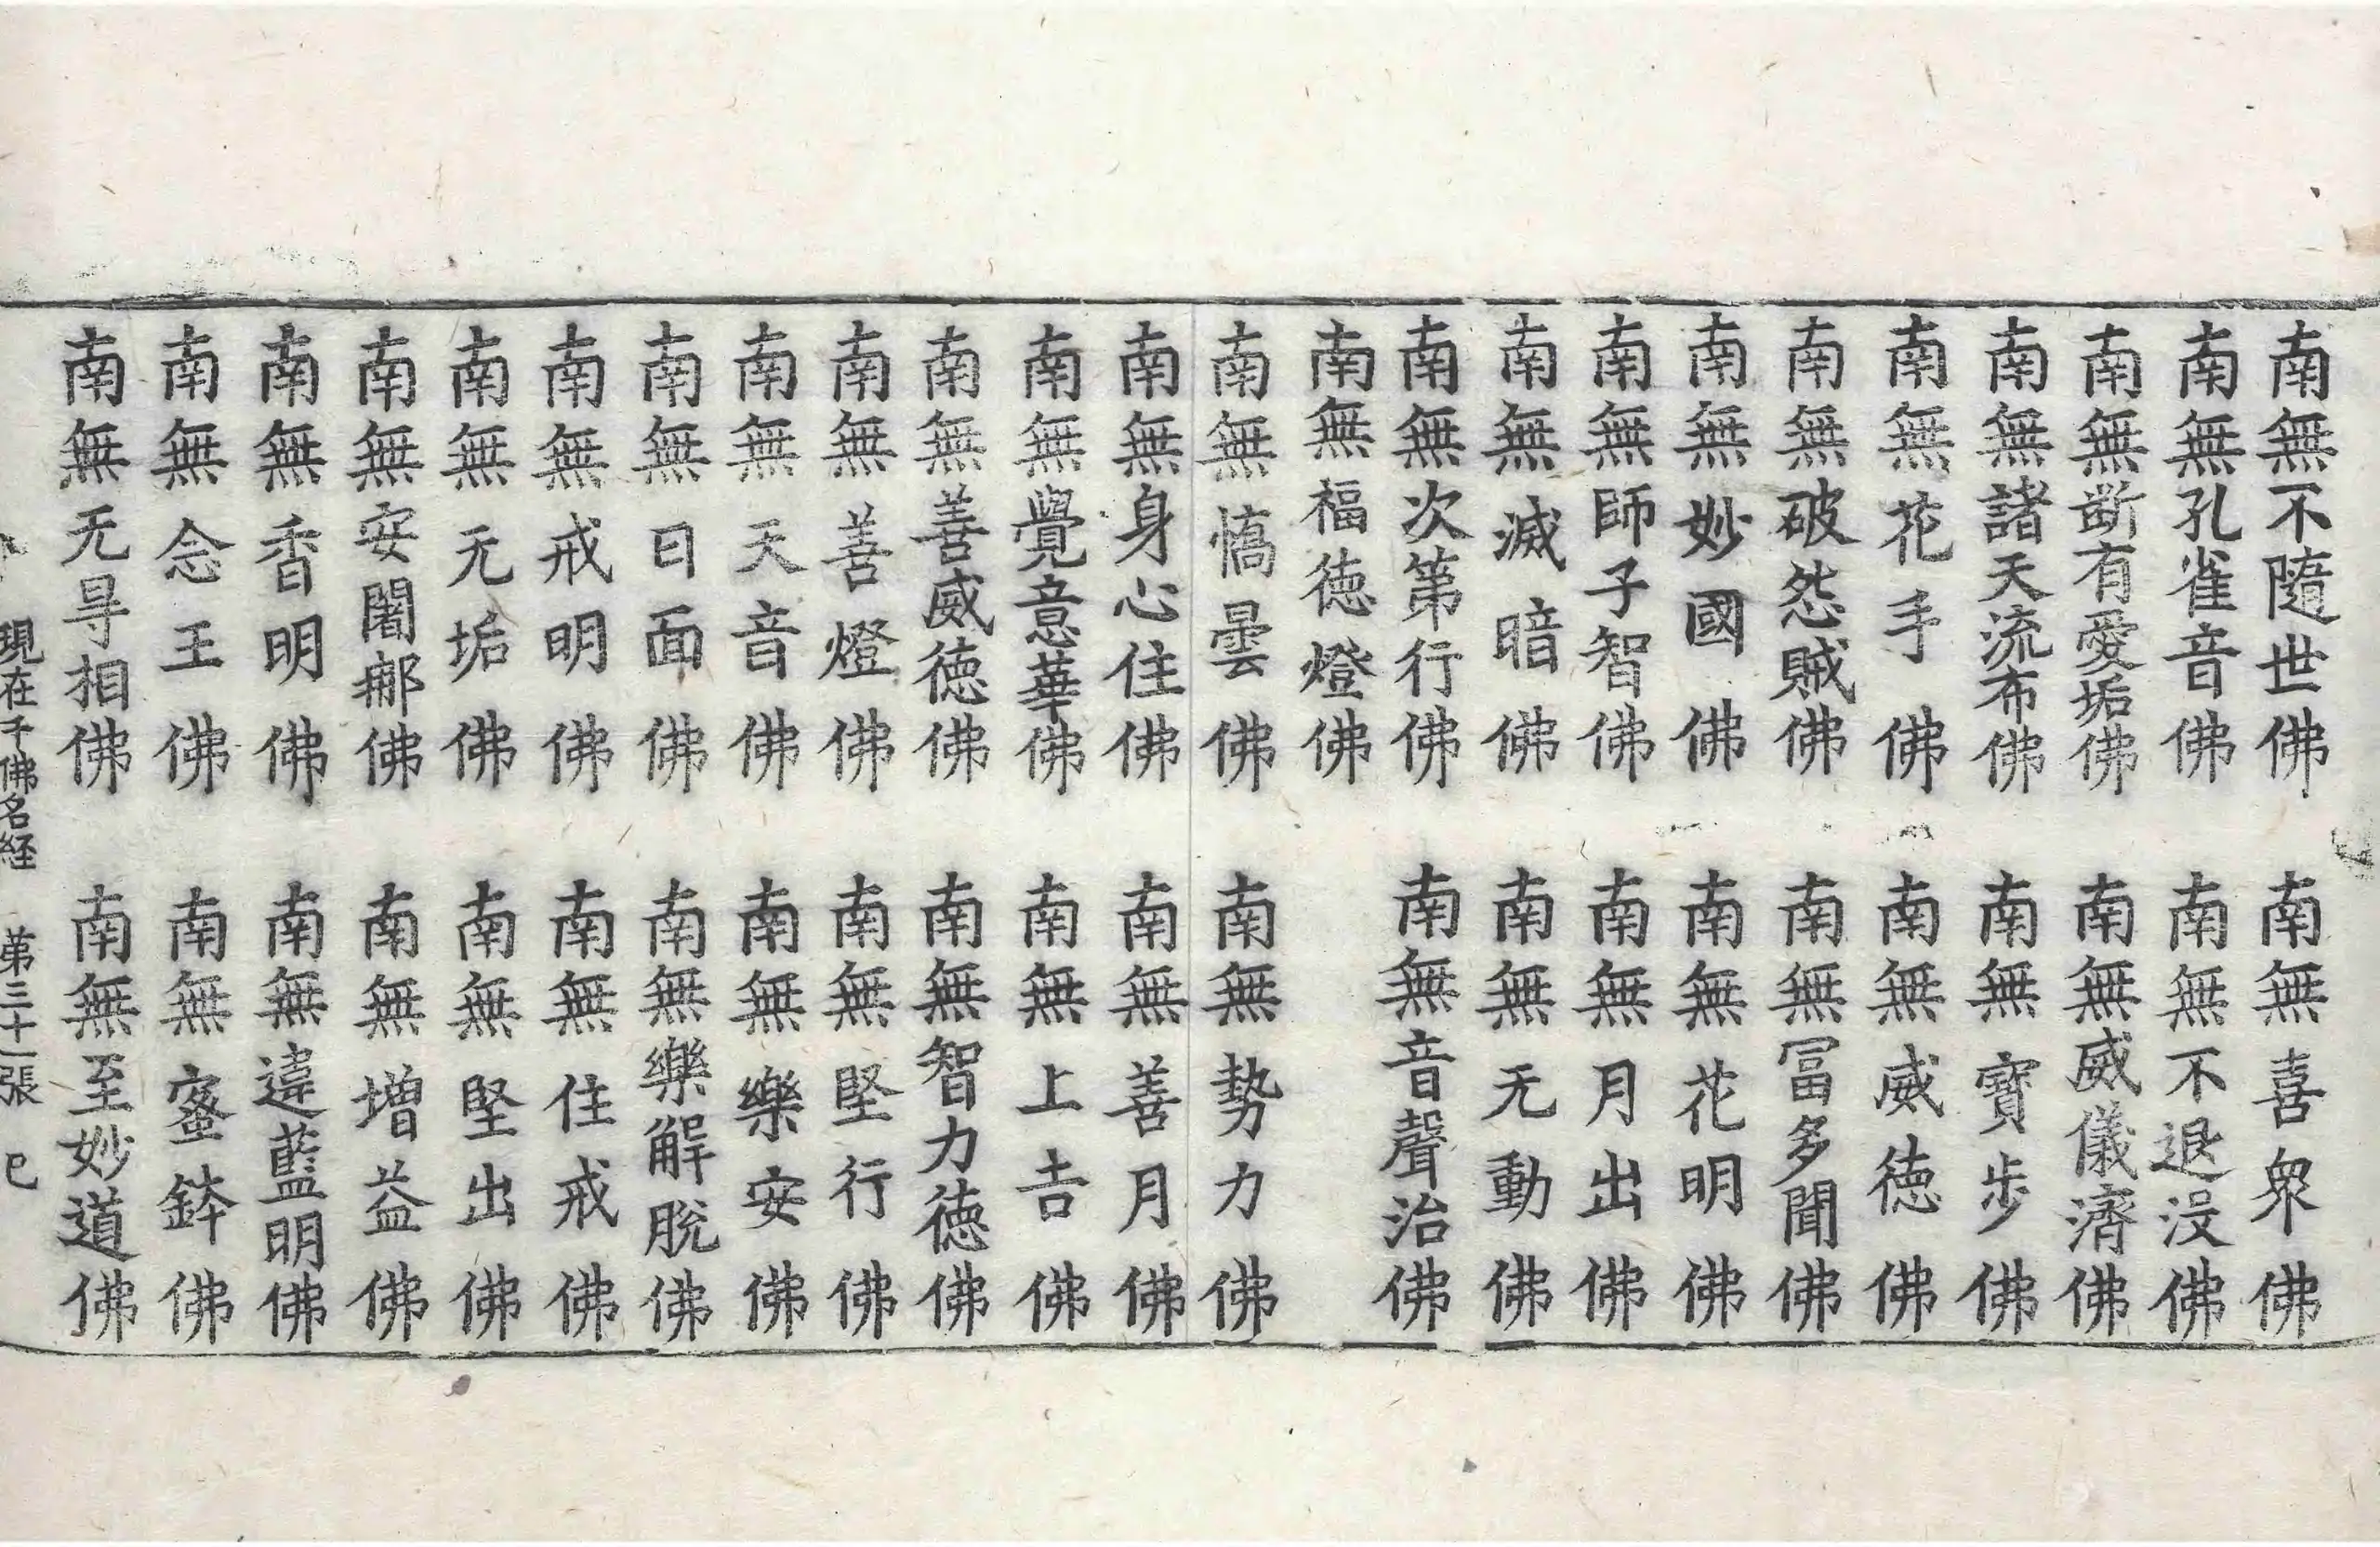 南無不隨世佛　南無喜衆佛
南無孔雀音佛　南無不退沒佛
南無斷有愛垢佛　南無威儀濟佛
南無諸天流布佛　南無寶步佛
南無花手佛　南無威德佛
南無破怨賊佛　南無冨多聞佛
南無妙國佛　南無花明佛
南無師子智佛　南無月出佛
南無滅暗佛　南無无動佛
南無次第行佛　南無音聲治佛
南無福德燈佛
南無憍曇佛　南無勢力佛
南無身心住佛　南無善月佛
南無覺意華佛　南無上吉佛
南無善威德佛　南無智力德佛
南無善燈佛　南無堅行佛
南無天音佛　南無樂安佛
南無日面佛　南無樂解脫佛
南無戒明佛　南無住戒佛
南無无垢佛　南無堅出佛
南無安闍那佛　南無增益佛
南無香明佛　南無違藍明佛
南無念王佛　南無蜜鉢佛
南無无㝵相佛　南無至妙道佛
現在千佛名経　第三十一張　巳